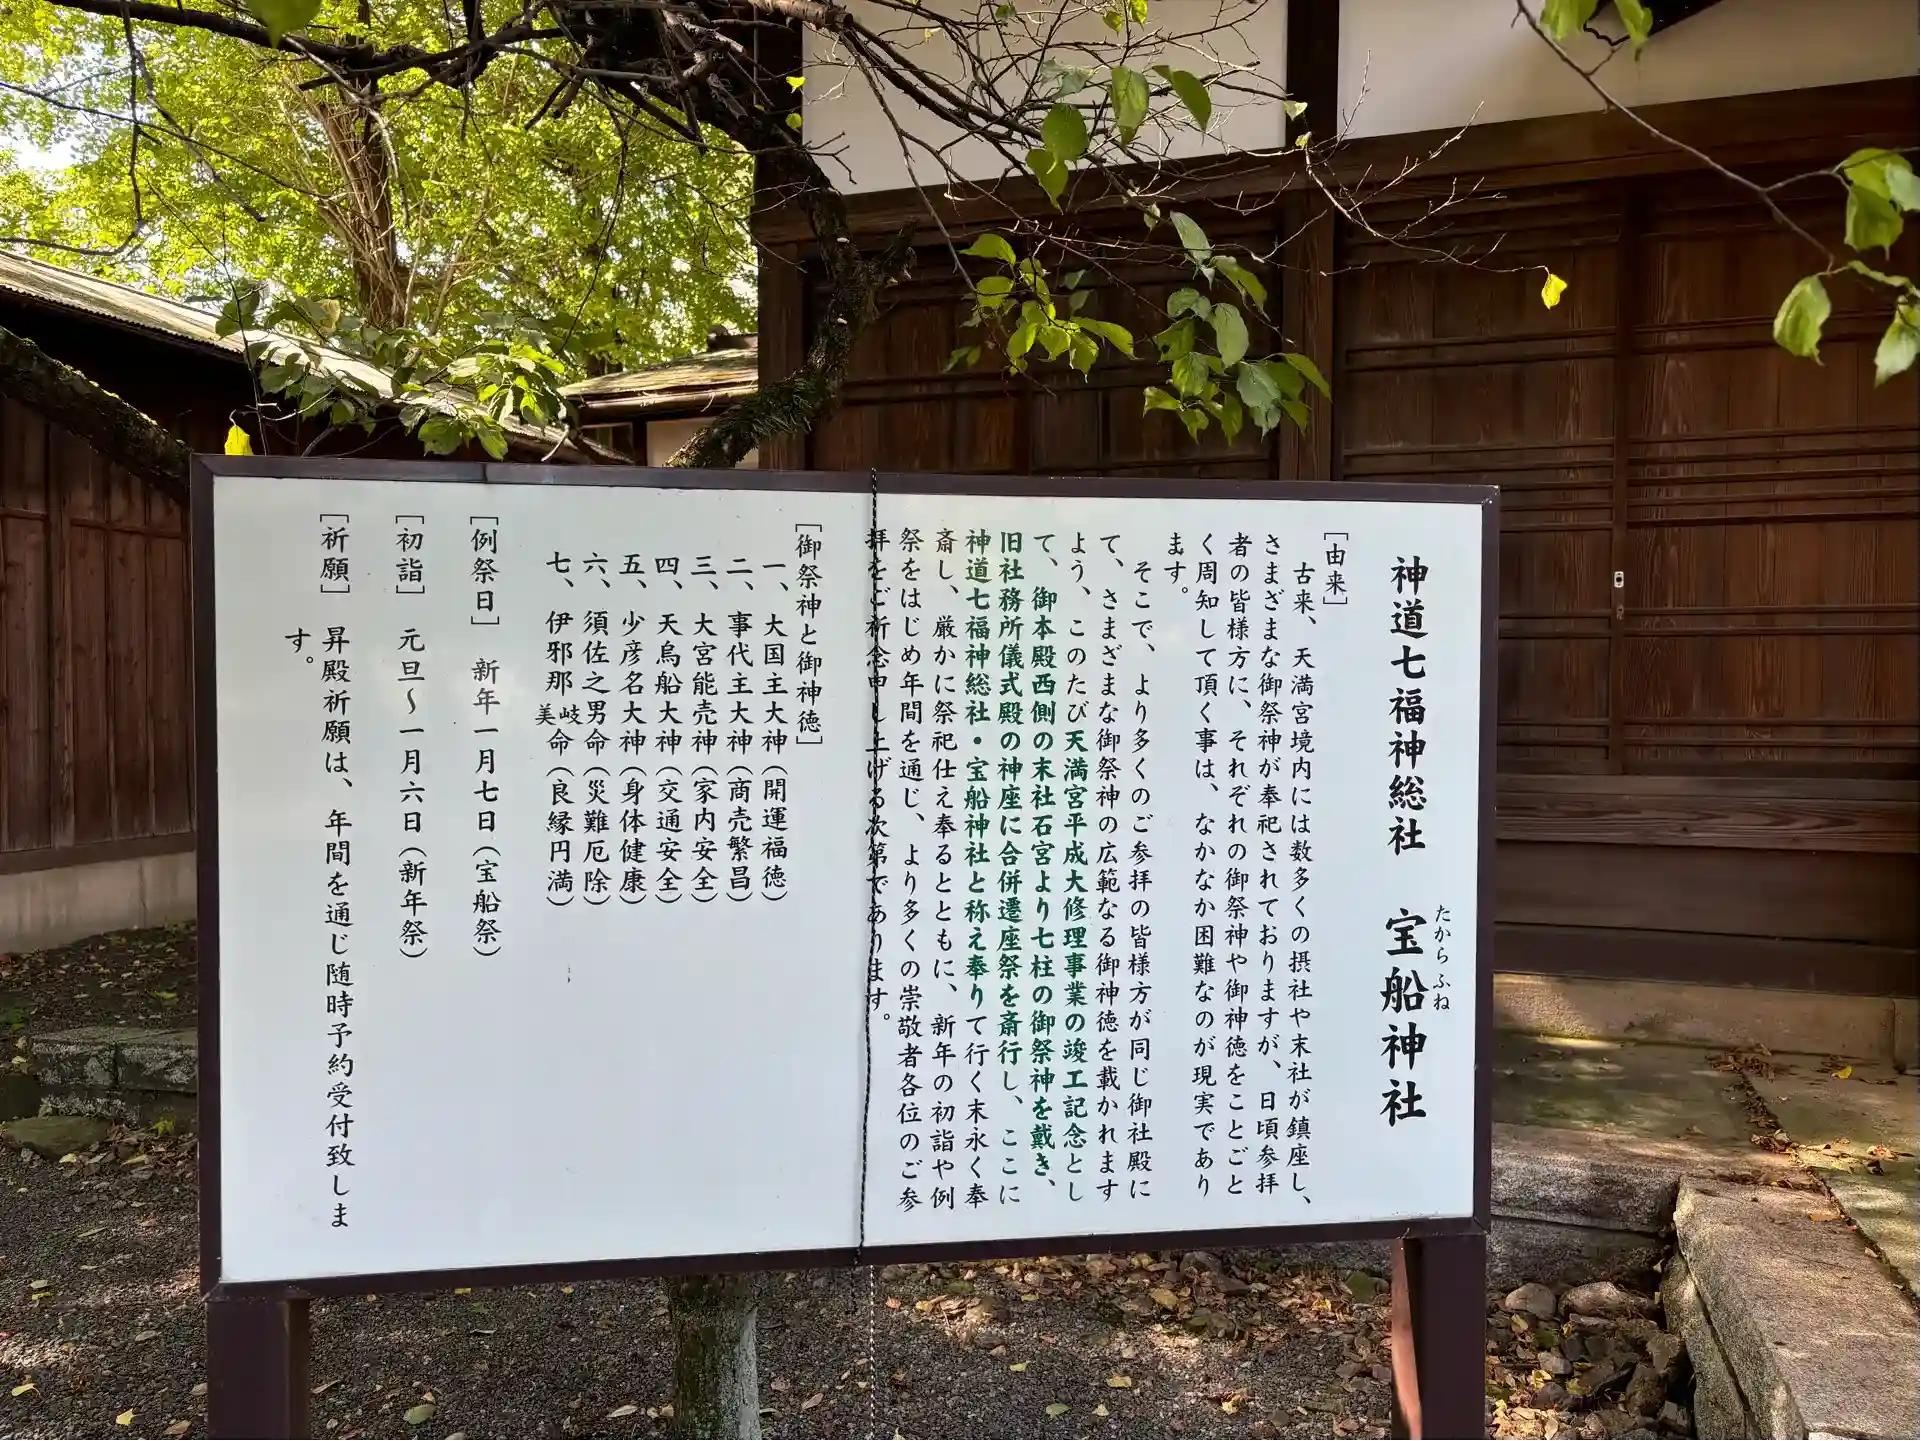 神道七福神総社　宝船神社
たからふね
［由来］
古来、天満宮境内には数多くの摂社や末社が鎮座し、
さまざまな御祭神が奉祀されておりますが、日頃参拝
者の皆様方に、それぞれの御祭神や御神徳をことごと
く周知して頂く事は、なかなか困難なのが現実であり
ます。
そこで、より多くのご参拝の皆様方が同じ御社殿に
て、さまざまな御祭神の広範なる御神徳を載かれます
よう、このたび天満宮平成大修理事業の竣工記念とし
て、御本殿西側の末社石宮より七柱の御祭神を戴き、
旧社務所儀式殿の神座に合併遷座祭を斎行し、ここに
神道七福神総社・宝船神社と称え奉りて行く末永く奉
斎し、厳かに祭祀仕え奉るとともに、新年の初詣や例
祭をはじめ年間を通じ、より多くの崇敬者各位のご参
拝をご祈念申し上げる次第であります。
［御祭神と御神徳］
一、大国主大神（開運福徳）
二、事代主大神（商売繁昌）
三、大宮能売神（家内安全）
四、天鳥船大神（交通安全）
五、少彦名大神（身体健康）
六、須佐之男命（災難厄除）
七、伊邪那岐美命（良縁円満）
［例祭日］　新年一月七日（宝船祭）
［初詣］　元旦〜一月六日（新年祭）
［祈願］　昇殿祈願は、年間を通じ随時予約受付致しま
す。